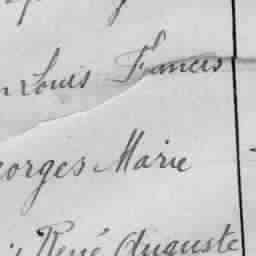 Louis Francis
eorges Marie
René Auguste